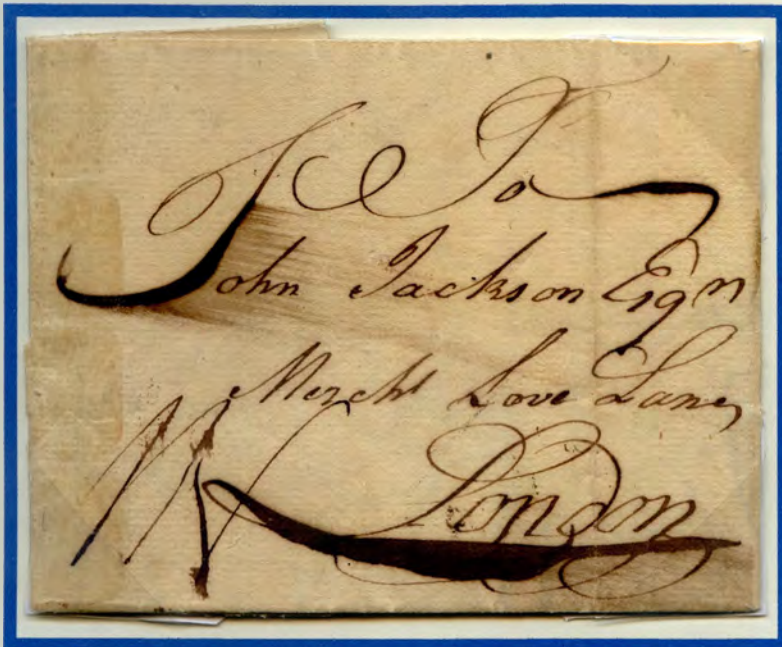 To
John Jackson Esqr
Mercht Love Lane
London